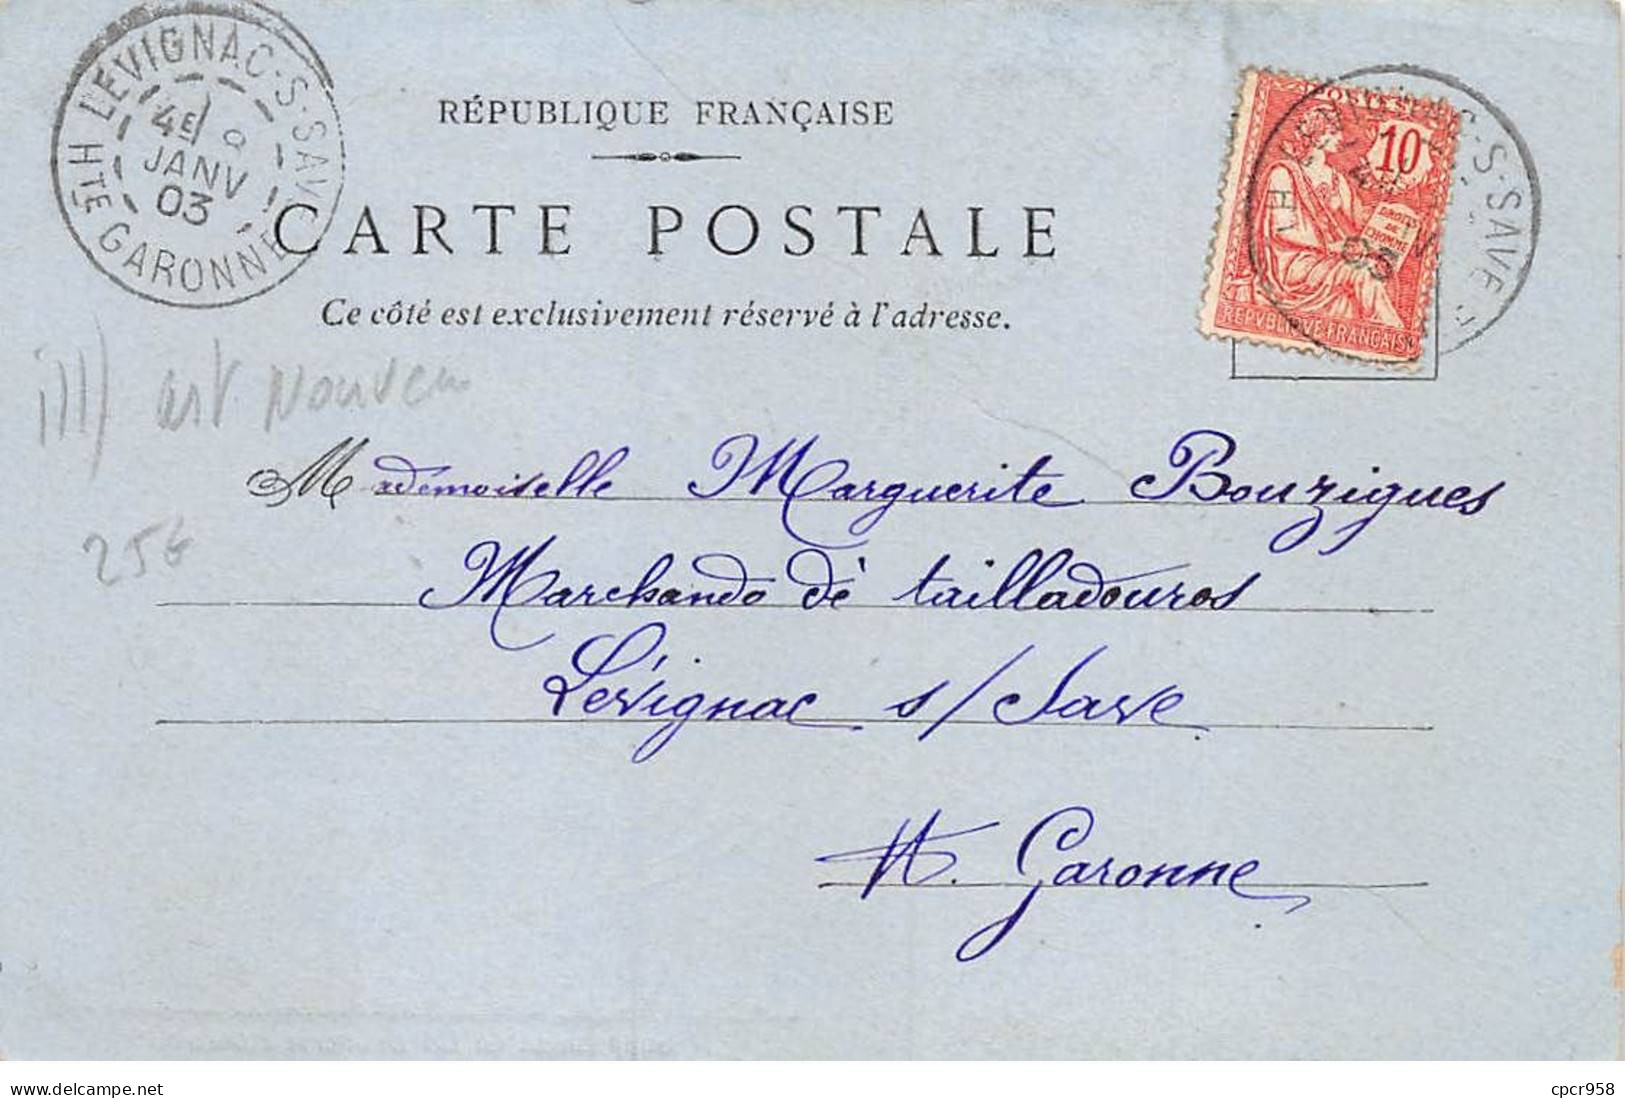 LEVIGNAC-S-SAVE
4E
JANV
03
HTE GARONNE
RÉPUBLIQUE FRANÇAISE
CARTE POSTALE
Ce côté est exclusivement réservé à l'adresse.
POSTES
10
DROITS
DE
L'HOMME
REPVBLIQVE FRANÇAISE
C-S-SAVE
03
ill) art Nouveau
25€
Mademoiselle Marguerite Bouzigues
Marchando dè tailladouros
Lévignac s/ Save
Ht. Garonne
cpcr958